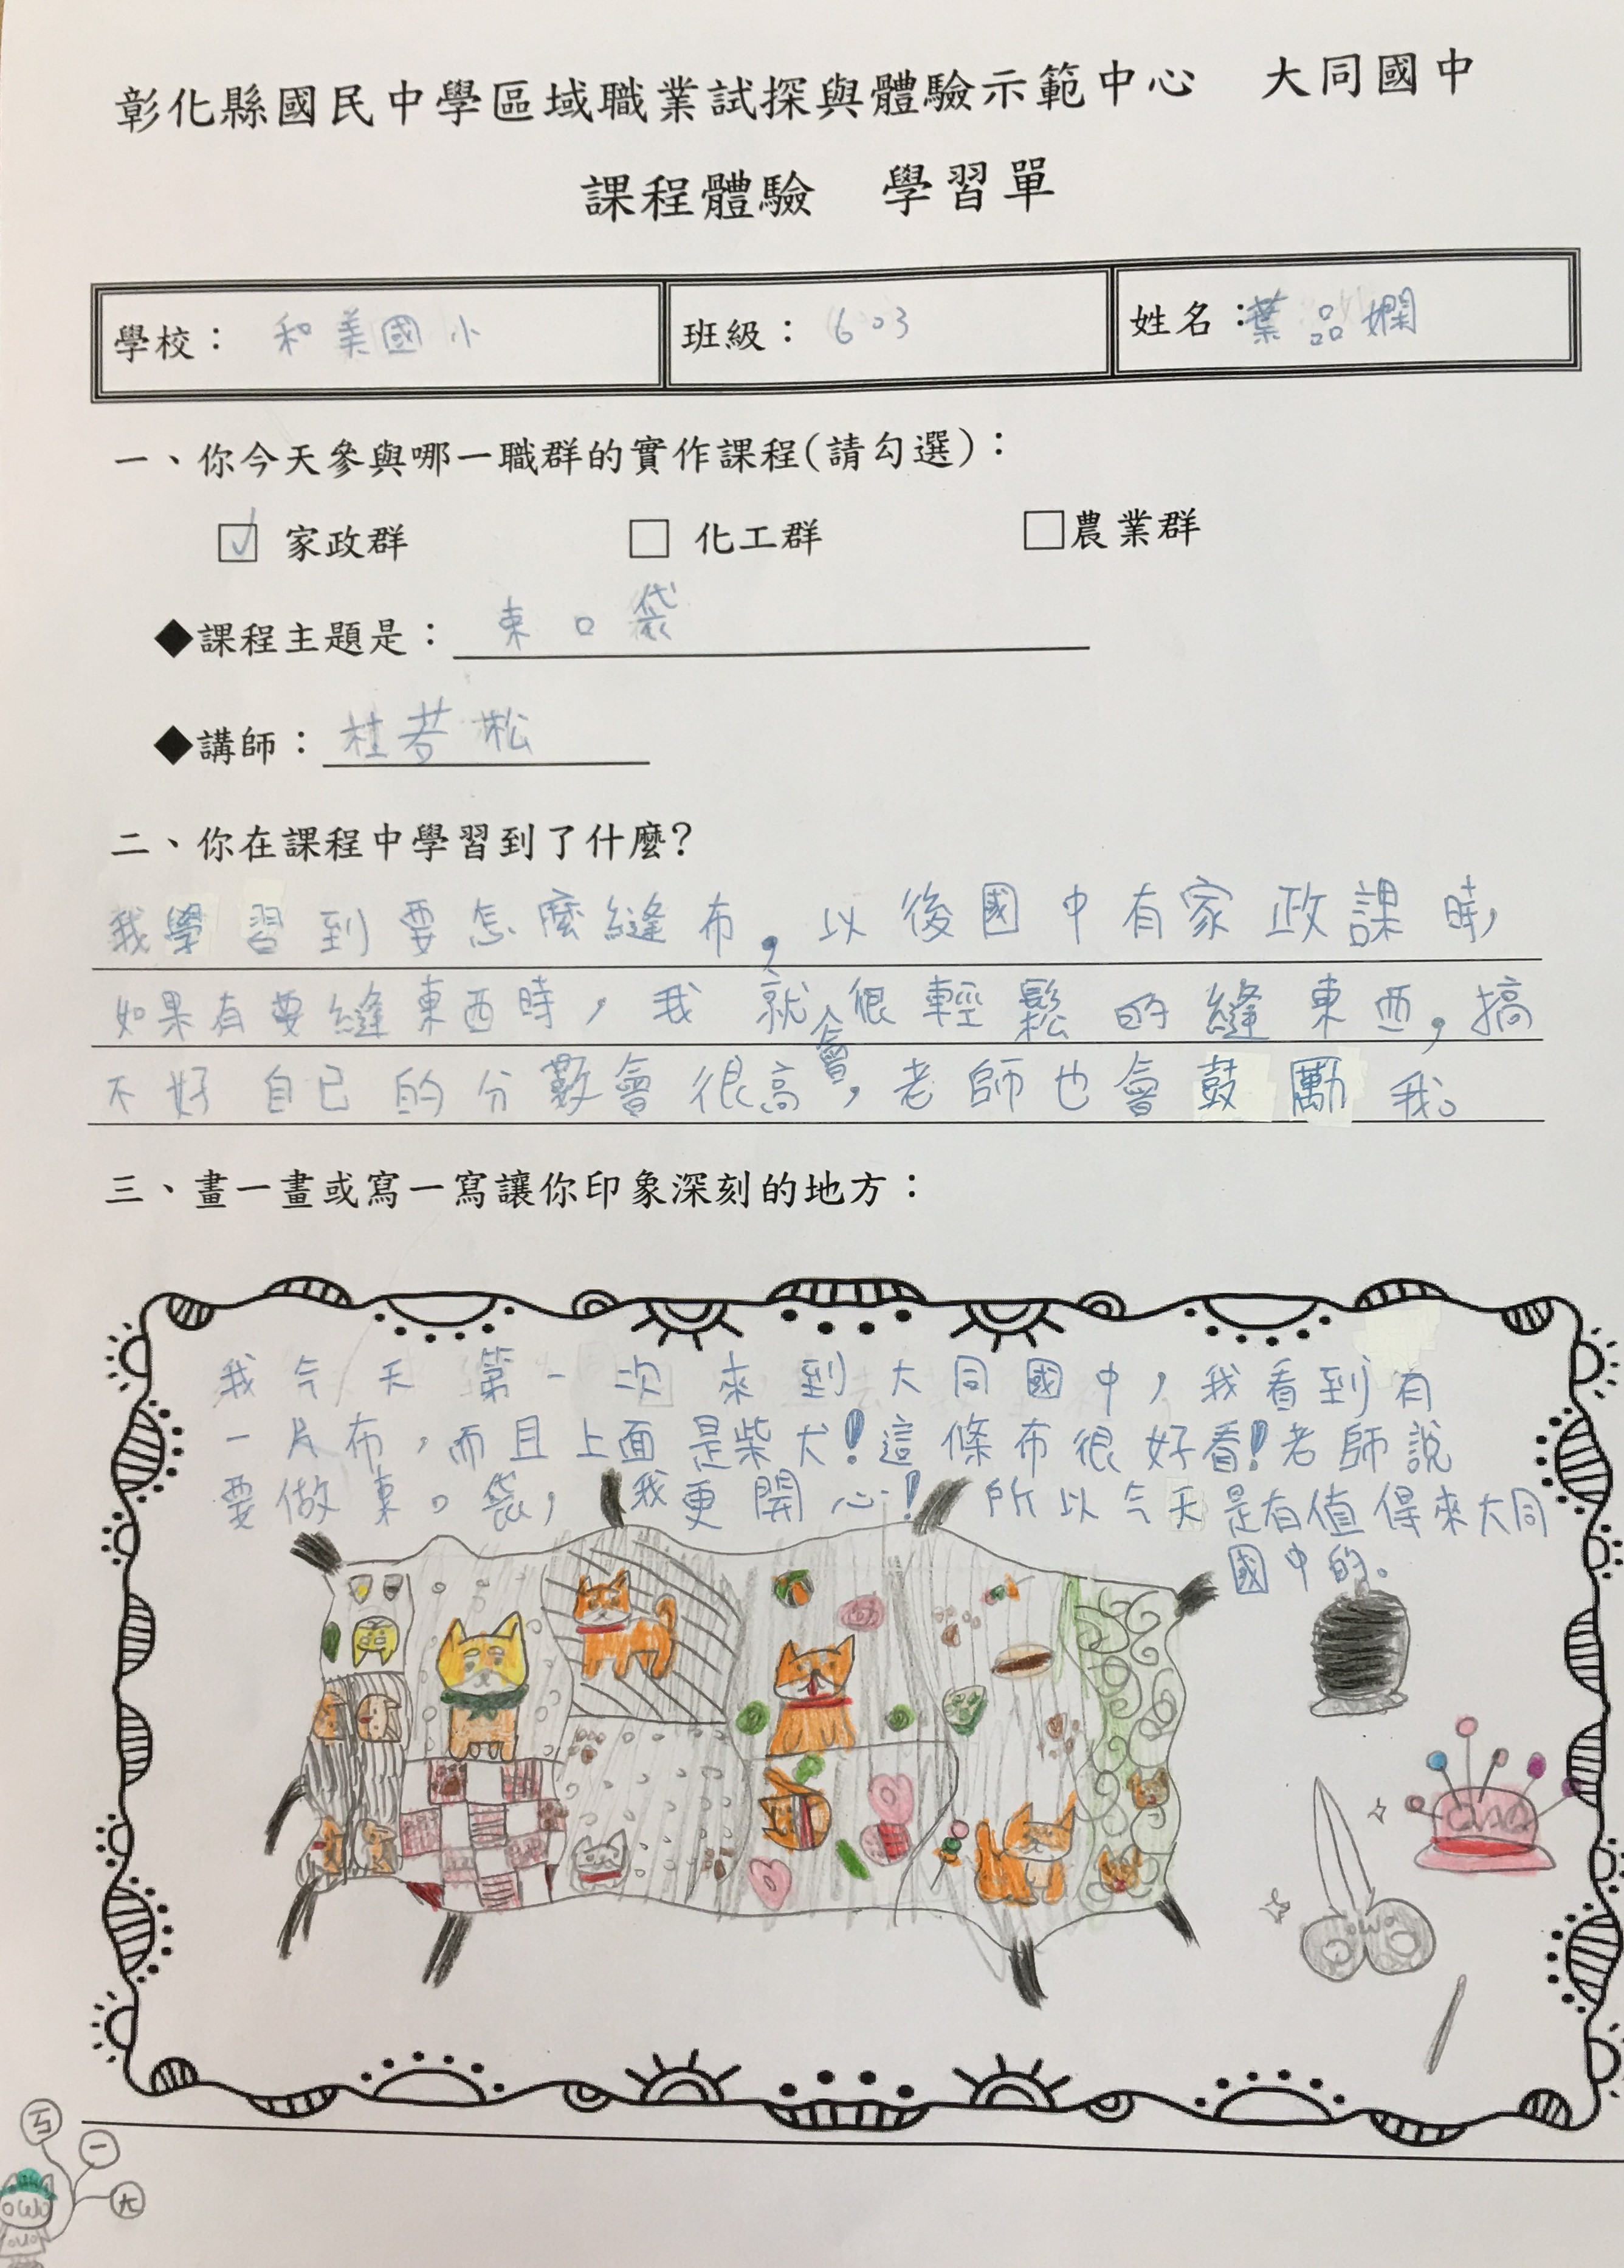 彰化縣國民中學區域職業試探與體驗示範中心 大同國中
課程體驗 學習單
學校： 和美國小 班級： 603 姓名：葉品嫻
一、你今天參與哪一職群的實作課程(請勾選)：
☑ 家政群 □ 化工群 □農業群
◆課程主題是： 束口袋
◆講師： 杜若松
二、你在課程中學習到了什麼?
我學習到要怎麼縫布，以後國中有家政課時，
如果有要縫東西時，我就會很輕鬆的縫東西，搞
不好自己的分數會很高，老師也會鼓勵我。
三、畫一畫或寫一寫讓你印象深刻的地方：
我今天第一次來到大同國中，我看到有
一片布，而且上面是柴犬!這條布很好看!老師說
要做束口袋，我更開心! 所以今天是有值得來大同
國中的。
ㄎ
一
ㄤ